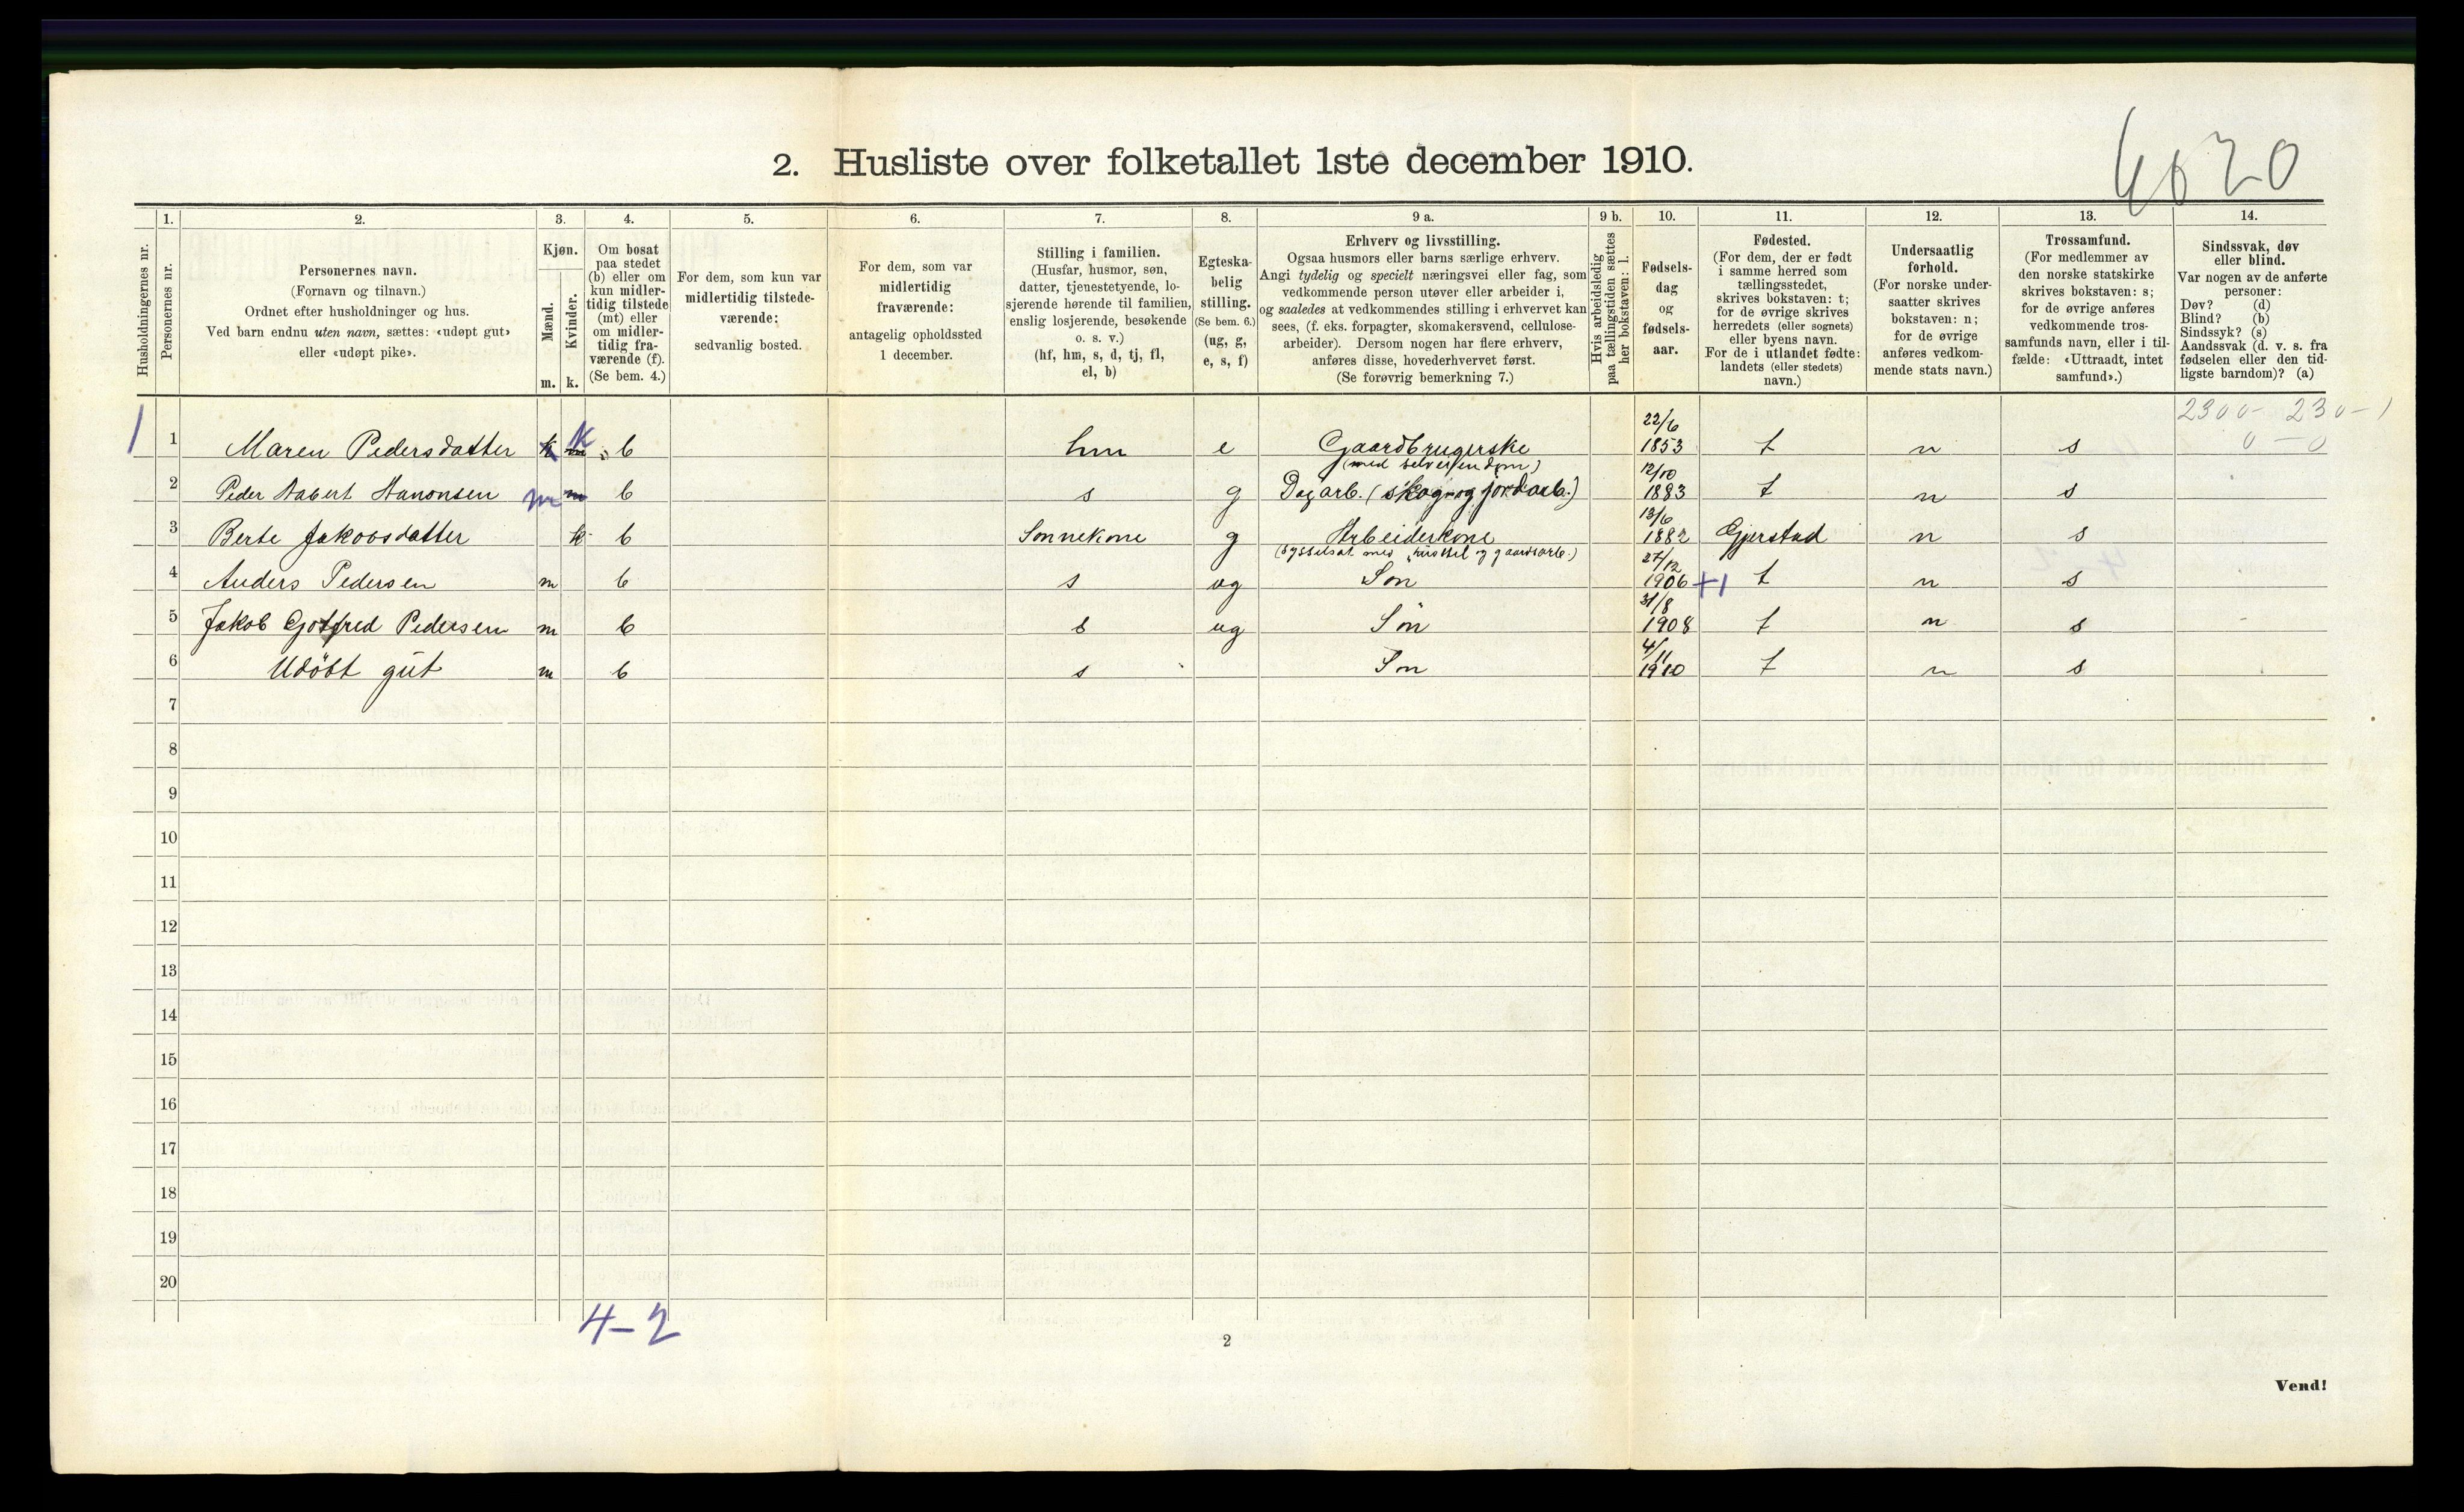 2. Husliste over folketallet 1ste december 1910.
1. 2. 3. 4. 5. 6. 7. 8. 9 a. 9 b. 10. 11. 12. 13. 14.
Husholdningernes nr.
Personernes nr.
Personernes navn.
(Fornavn og tilnavn.)
Ordnet efter husholdninger og hus.
Ved barn endnu uten navn, sættes: «udøpt gut»
eller «udøpt pike».
Kjøn.
Mænd.
Kvinder.
m. k.
Om bosat
paa stedet
(b) eller om
kun midler-
tidig tilstede
(mt) eller
om midler-
tidig fra-
værende (f).
(Se bem. 4.)
For dem, som kun var
midlertidig tilstede-
værende:
sedvanlig bosted.
For dem, som var
midlertidig
fraværende:
antagelig opholdssted
1 december.
Stilling i familien.
(Husfar, husmor, søn,
datter, tjenestetyende, lo-
sjerende hørende til familien,
enslig losjerende, besøkende
o. s. v.)
(hf, hm, s, d, tj, fl,
el, b)
Egteska-
belig
stilling.
(Se bem. 6.)
(ug, g,
e, s, f)
Erhverv og livsstilling.
Ogsaa husmors eller barns særlige erhverv.
Angi tydelig og specielt næringsvei eller fag, som
vedkommende person utøver eller arbeider i,
og saaledes at vedkommendes stilling i erhvervet kan
sees, (f. eks. forpagter, skomakersvend, cellulose-
arbeider). Dersom nogen har flere erhverv,
anføres disse, hovederhvervet først.
(Se forøvrig bemerkning 7.)
Hvis arbeidsledig
paa tællingstiden sættes
her bokstaven: l.
Fødsels-
dag
og
fødsels-
aar.
Fødested.
(For dem, der er født
i samme herred som
tællingsstedet,
skrives bokstaven: t;
for de øvrige skrives
herredets (eller sognets)
eller byens navn.
For de i utlandet fødte:
landets (eller stedets)
navn.)
Undersaatlig
forhold.
(For norske under-
saatter skrives
bokstaven: n;
for de øvrige
anføres vedkom-
mende stats navn.)
Trossamfund.
(For medlemmer av
den norske statskirke
skrives bokstaven: s;
for de øvrige anføres
vedkommende tros-
samfunds navn, eller i til-
fælde: «Uttraadt, intet
samfund».)
Sindssvak, døv
eller blind.
Var nogen av de anførte
personer:
Døv? (d)
Blind? (b)
Sindssyk? (s)
Aandssvak (d. v. s. fra
fødselen eller den tid-
ligste barndom)? (a)
2300- 230-1
0-0
1 1 Maren Pedersdatter k b hm e Gaardbrugerske 22/6 1853 t n s
(med selveiendom)
2 Peder Hanonsen m b s g Dagarb. (skog-og jordarb.) 12/10 1883 t n s
3 Berte Jakobsdatter k b Sonnekone g Arbeiderkone 13/6 1882 Gjerstad n s
(sysselsat med husstel og gaardsarb.)
4 Anders Pedersen m b s ug Son 27/12 1906 +1 t n s
5 Jakob Gotfred Pedersen m b s ug Sön 31/8 1908 t n s
6 Udöbt gut m b s Son 4/11 1910 t n s
7
8
9
10
11
12
13
14
15
16
17
18
19
20
4-2
2
Vend!